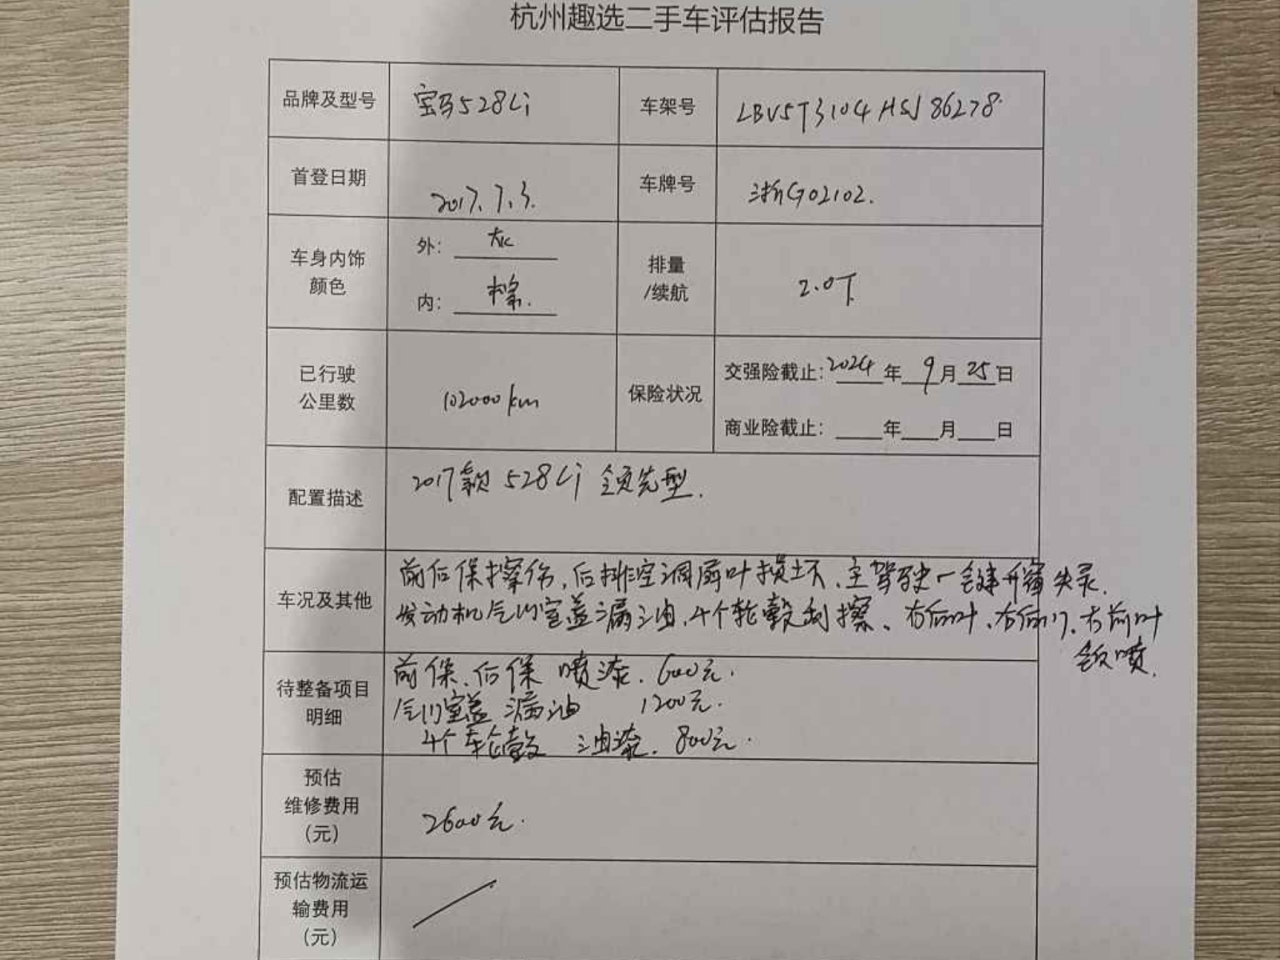 杭州趣选二手车评估报告
品牌及型号 宝马528Li 车架号 LBV5T3104HSJ86278
首登日期 2017.7.3. 车牌号 浙G02102.
车身内饰 外:
颜色 内: 棕. 排量
/续航 2.0T
已行驶
公里数 102000km 保险状况 交强险截止:2024年9月25日
商业险截止:____年___月___日
配置描述 2017款 528Li 领先型.
车况及其他 前后保擦伤,后排空调扇叶损坏,主驾驶一键开窗失灵.
发动机气门室盖漏油,4个轮毂刮擦、右后叶、右后门、右前叶
喷.
待整备项目
明细 前保、后保 喷漆. 600元.
气门室盖 漏油 1200元.
4个轮毂 油漆. 800元.
预估
维修费用
(元) 2600元.
预估物流运
输费用
(元)